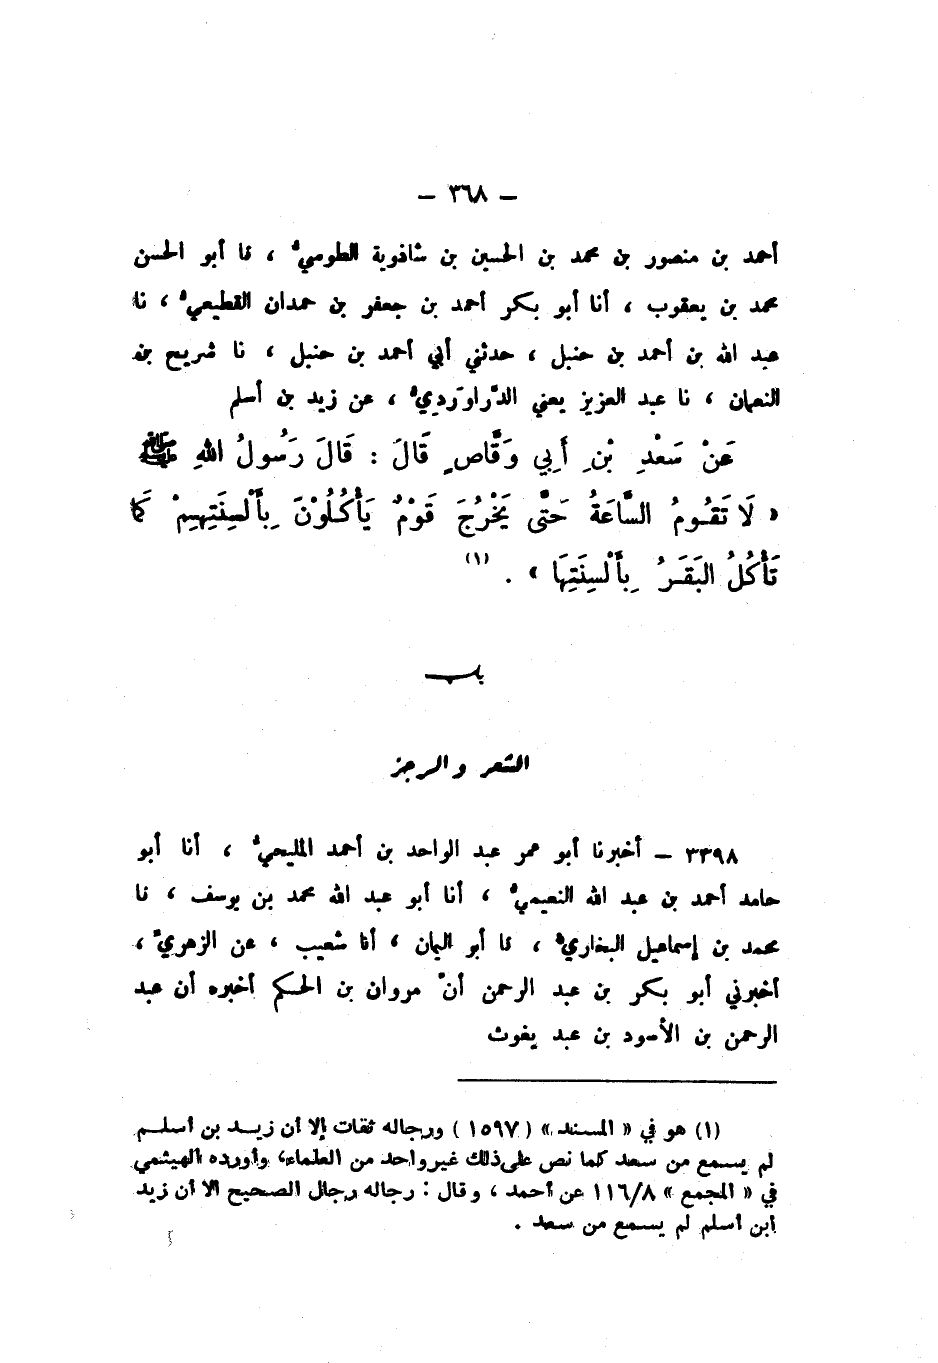 — ٣٦٨ —
أحمد بن منصور بن محمد بن الحسين بن شاذوية الطوسيُّ ، نا أبو الحسن
محمد بن يعقوب ، أنا أبو بكر أحمد بن جعفر بن حمدان القطيعيُّ ، نا
عبد الله بن أحمد بن حنبل ، حدثني أبي أحمد بن حنبل ، نا شريح بن
النعمان ، نا عبد العزيز يعني الدَّراوَردِيُّ ، عن زيد بن أسلم
عَنْ سَعْدِ بْنِ أَبِي وَقَّاصٍ قَالَ : قَالَ رَسُولُ اللهِ ﷺ
« لَا تَقُومُ السَّاعَةُ حَتَّى يَخْرُجَ قَوْمٌ يَأْكُلُوْنَ بِأَلْسِنَتِهِمْ كَمَا
تَأْكُلُ البَقَرُ بِأَلْسِنَتِهَا » . (١)
باب
الشعر والرجز
٣٣٩٨ — أخبرنا أبو عمر عبد الواحد بن أحمد المليحيُّ ، أنا أبو
حامد أحمد بن عبد الله النعيميُّ ، أنا أبو عبد الله محمد بن يوسف ، نا
محمد بن إسماعيل البخاريُّ ، نا أبو اليمان ، أنا شعيب ، عن الزهريِّ ،
أخبرني أبو بكر بن عبد الرحمن أنَّ مروان بن الحكم أخبره أن عبد
الرحمن بن الأسود بن عبد يغوث
(١) هو في « المسند » ( ١٥٩٧ ) ورجاله ثقات إلا أن زيد بن أسلم
لم يسمع من سعد كما نص على ذلك غير واحد من العلماء، وأورده الهيثمي
في « المجمع » ١١٦/٨ عن أحمد ، وقال : رجاله رجال الصحيح الا أن زيد
ابن أسلم لم يسمع من سعد .